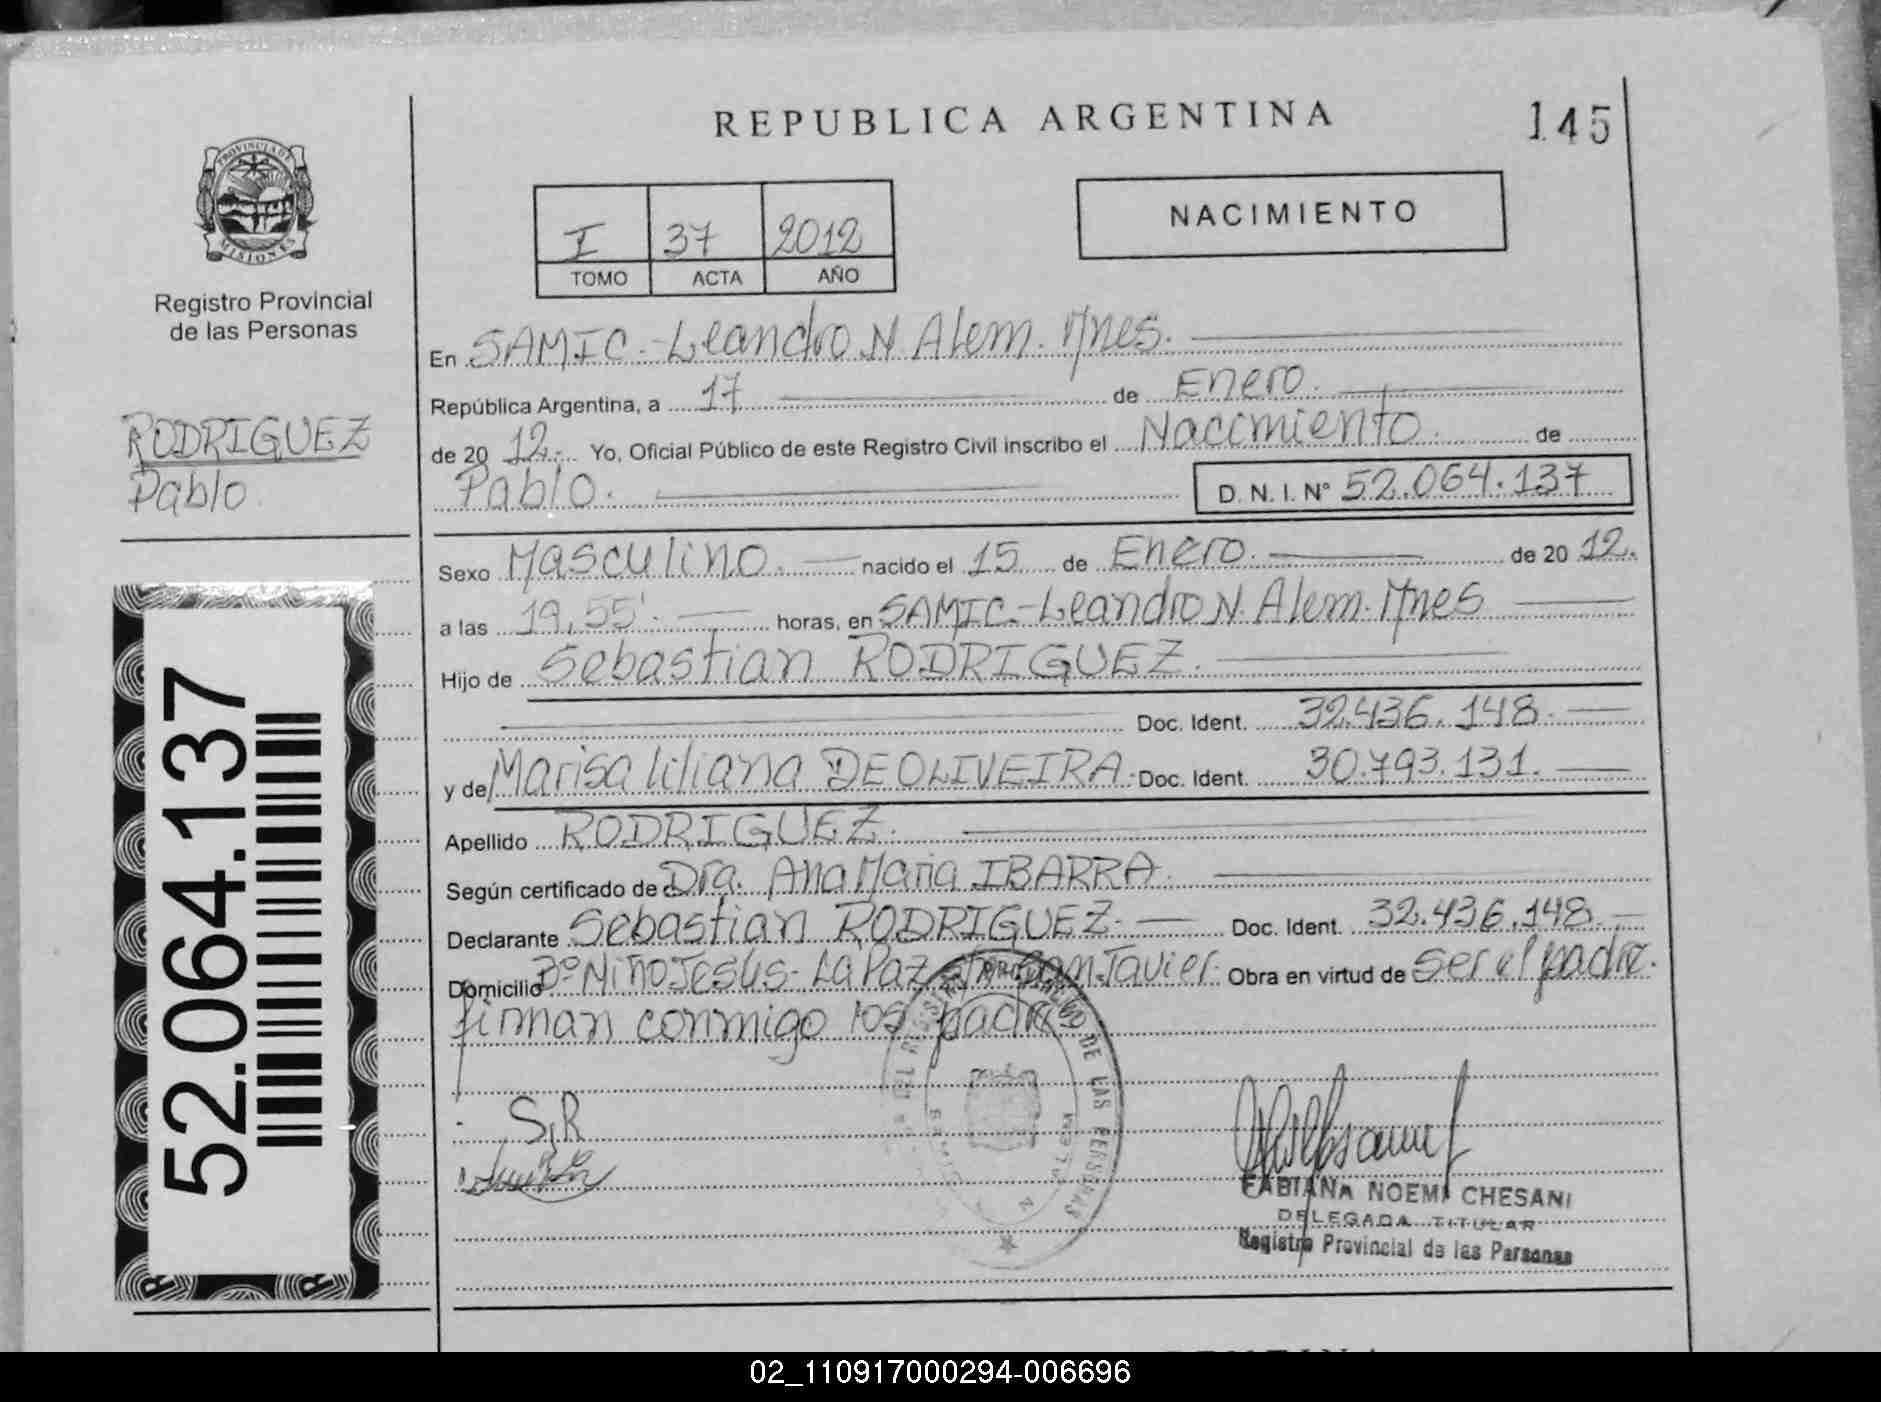 REPUBLICA ARGENTINA
145
PROVINCIA DE MISIONES
Registro Provincial
de las Personas
I 37 2012
TOMO ACTA AÑO
NACIMIENTO
RODRIGUEZ
Pablo
En SAMIC.-Leandro N Alem. Mnes.
República Argentina, a 17 de Enero.
de 2012.- Yo, Oficial Público de este Registro Civil inscribo el Nacimiento. de
Pablo. D. N. I. Nº 52.064.137
Sexo Masculino. nacido el 15 de Enero. de 2012.
a las 19,55'. horas, en SAMIC.-Leandro N. Alem. Mnes
Hijo de Sebastian RODRIGUEZ.
Doc. Ident. 32.436.148.
y de Marisa liliana DE OLIVEIRA. Doc. Ident. 30.793.131.
Apellido RODRIGUEZ.
Según certificado de Dra. Ana Maria IBARRA.
Declarante Sebastian RODRIGUEZ. Doc. Ident. 32.436.148.
Domicilio Bº Niño Jesus- La Paz Javier. Obra en virtud de ser el padre.
firman conmigo los padres
52.064.137
S.R
DE LAS PERSONAS
FABIANA NOEMI CHESANI
DELEGADA TITULAR
Registro Provincial de las Personas
02_110917000294-006696